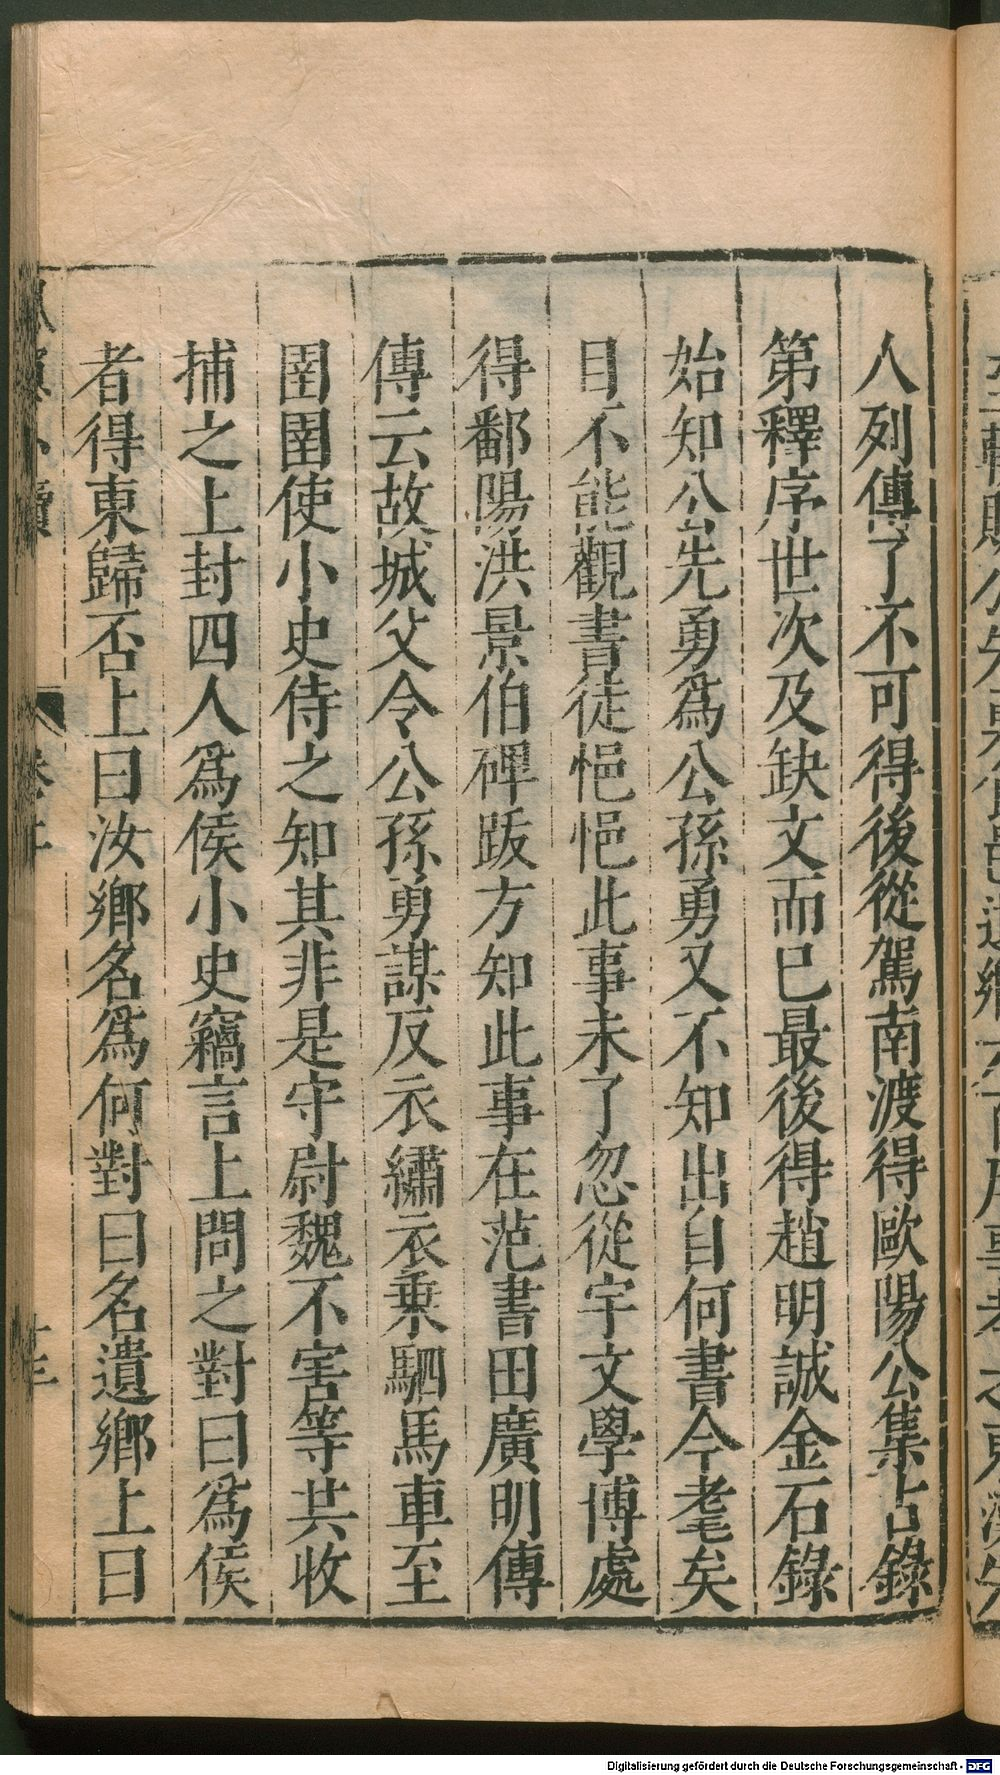 人列傳了不可得後從駕南渡得歐陽公集古錄
第釋序世次及缺文而巳最後得趙明誠金石錄
始知公先勇爲公孫勇又不知出自何書今耄矣
目不能觀書徒悒悒此事未了忽從宇文學博處
得鄱陽洪景伯碑跋方知此事在范書田廣明傳
傳云故城父令公孫勇謀反衣繡衣乘駟馬車至
圉圉使小史侍之知其非是守尉魏不害等共收
捕之上封四人爲侯小史竊言上問之對曰爲侯
者得東歸否上曰汝鄉名爲何對曰名遺鄉上曰
Digitalisierung gefördert durch die Deutsche Forschungsgemeinschaft - DFG